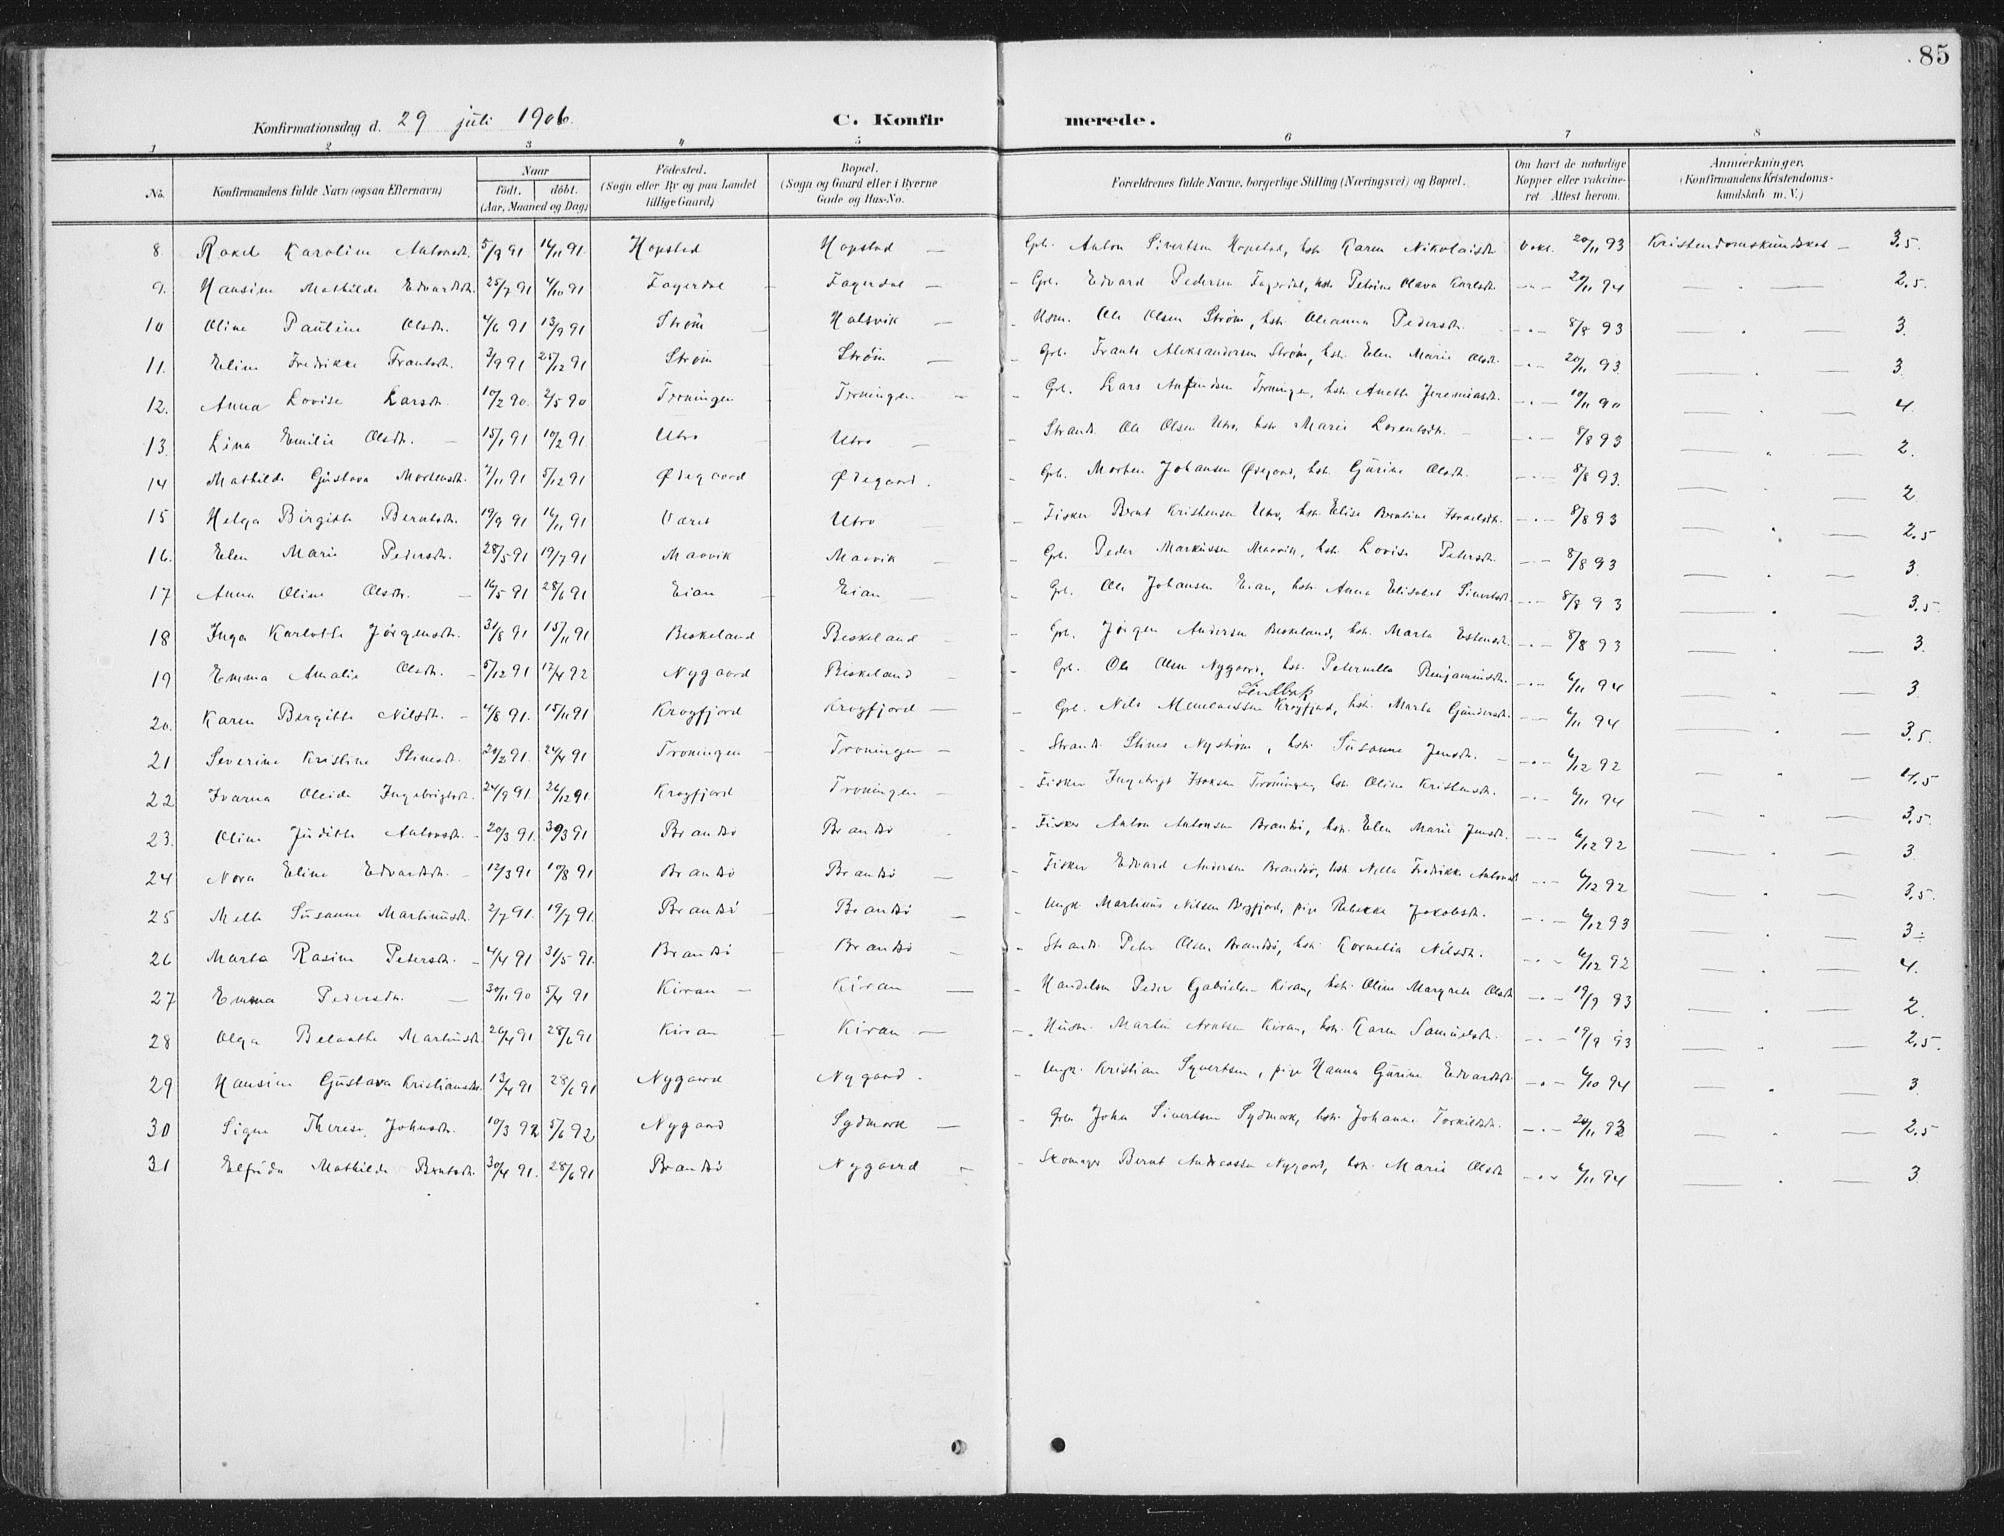 85
Konfirmationsdag d. 29 juli 1906. C. Konfirmerede.
1 2 3 4 5 6 7 8
No. Konfirmandens fulde Navn (ogsaa Efternavn) Naar født. døbt. (Aar, Maaned og Dag) Fødested. (Sogn eller By og paa Landet tillige Gaard) Bopæl. (Sogn og Gaard eller i Byerne Gade og Hus-No. Forældrenes fulde Navne, borgerlige Stilling (Næringsvei) og Bopæl. Om havt de naturlige Kopper eller vakcineret Attest herom. Anmærkninger. (Konfirmandens Kristendomskundskab m. V.)
8. Rakel Karoline Antonsdt. 5/9 91 16/11 91. Hopstad Hopstad — Gbr. Anton Sivertsen Hopstad, hst. Karen Nikolaisdt. vaks. 20/11 93 Kristendomskundskab — 3.5.
9. Hansine Mathilde Edvardsdt. 25/7 91 4/10 91 Fagerdal — Fagerdal — Gbr. Edvard Pedersen Fagerdal, hst. Petrine Olava Karlsdt. 20/11 94 2.5.
10 Oline Pauline Olsdt. 4/6 91 13/9 91 Strøm — Halsvik — Husm. Ole Olsen Strøm, hst. Oleanna Pedersdt. 8/8 93 3.
11. Eline Fredrikke Frantsdt. 3/9 91 25/12 91 Strøm Strøm — Gbr. Frants Aleksandersen Strøm, hst. Elen Marie Olsdt. 20/11 93 3
12. Anna Lovise Larsdt. 10/2 90. 2/5 90 Troningen Troningen — Gbr. Lars Anfindsen Troningen, hst. Anette Jeremiasdt. 10/11 90 4.
13. Lina Emilie Olsdt. — 15/1 91 10/2 91. Utro Utro — Strands. Ole Olsen Utro, hst. Marie Lorentsdt. — 8/8 93 2.
14 Mathilde Gustava Mortensdt. 7/11 91 5/12 91 Ødegaard Ødegaard. Gbr. Morten Johansen Ødegaard, hst. Gurine Olsdt. 8/8 93. 2
15 Helga Birgitte Berntsdt. 19/9 91 16/11 91 Været Utro Fisker Bernt Kristensen Utro, hst. Elise Berntine Israelsdt. 8/8 93 2.5
16. Elen Marie Pedersdt. 28/5 91 19/7 91 Maavik Maavik — Gbr. Peder Markussen Maavik, hst. Lovise Petersdt. 8/8 93 3.
17 Anna Oline Olsdt. — 16/5 91 28/6 91 Eian — Eian — Gbr. Ole Johansen Eian, hst. Anna Elisabet Sivertsdt. 8/8 93 3.5
18 Inga Karlotte Jørgensdt. 31/8 91 15/11 91 Beskeland Beskeland — Gbr. Jørgen Andersen Beskeland, hst. Marta Estensdt. 8/8 93 3.
19 Emma Amalie Olsdt. — 5/12 91 17/4 92 Nygaard Beskeland — Gbr. Ole Olsen Nygaard, hst. Peternella Benjaminsdt. 6/11 94 3
20. Karen Bergitte Nilsdt. — 4/8 91. 15/11 91 Krogfjord Krogfjord — Gbr. Nils Krogfjord, hst. Marta Gundersdt. 6/11 94 3.5.
21 Severine Kristine Stinesdt. 20/2 91. 24/4 91 Troningen — Troningen — Strands. Stines Nystrøm, hst. Susanne Jensdt. — 6/12 92 4.5
22 Ivarna Oleide Ingebrigtsdt. 24/9 91 26/12 91. Krogfjord Troningen — Fisker Ingebrigt Isaksen Troningen, hst. Oline Kristensdt. 6/11 94 3.5.
23. Oline Judithe Antonsdt. 20/3 91. 30/3 91 Brandsø Brandsø Fisker Anton Antonsen Brandsø, hst. Elen Marie Jensdt. 6/12 92 3.
24 Nora Eline Edvardsdt. — 12/3 91 10/8 91 Brandsø Brandsø — Fisker Edvard Andersen Brandsø, hst. Nella Fredrikke Antonsdt. 6/12 92 3.5.
25 Mette Susanne Martinusdt. 2/7 91. 19/7 91. Brandsø Brandsø — Ungk. Martinus Nilsen Bergfjord, pige Rebekka Jakobsdt. 6/12 93 3.
26 Marta Rasine Petersdt. — 4/4 91 31/5 91. Brandsø Brandsø — Strands. Peter Olsen Brandsø, hst. Kornelia Nilsdt. 6/12 92 4.
27 Emma Pedersdt. — 30/11 90 5/4 91 Kiran — Kiran — Handelsm. Peder Gabrielsen Kiran, hst. Oline Margrete Olsdt. 19/9 93 2.
28 Olga Belantha Martinsdt. 26/4 91 28/6 91. Kiran Kiran — Husm. Martin Arntsen Kiran, hst. Karen Samuelsdt. 19/9 93 2.5.
29 Hansine Gustava Kristiansdt. 13/4 91 28/6 91 Nygaard Nygaard. Ungk. Kristian Syvertsen, pige Hanna Gurine Edvardsdt. 6/10 94 3
30 Signe Therese Johnsdt. 10/3 92 5/6 92 Nygaard Sydmark — Gbr. John Sivertsen Sydmark, hst. Johanne Torkildsdt. 20/11 93 2.5
31 Elfrida Mathilde Berntsdt. 30/4 91. 28/6 91 Brandsø Nygaard — Skomager Bernt Andreassen Nygaard, hst. Marie Olsdt. 6/11 94 3.